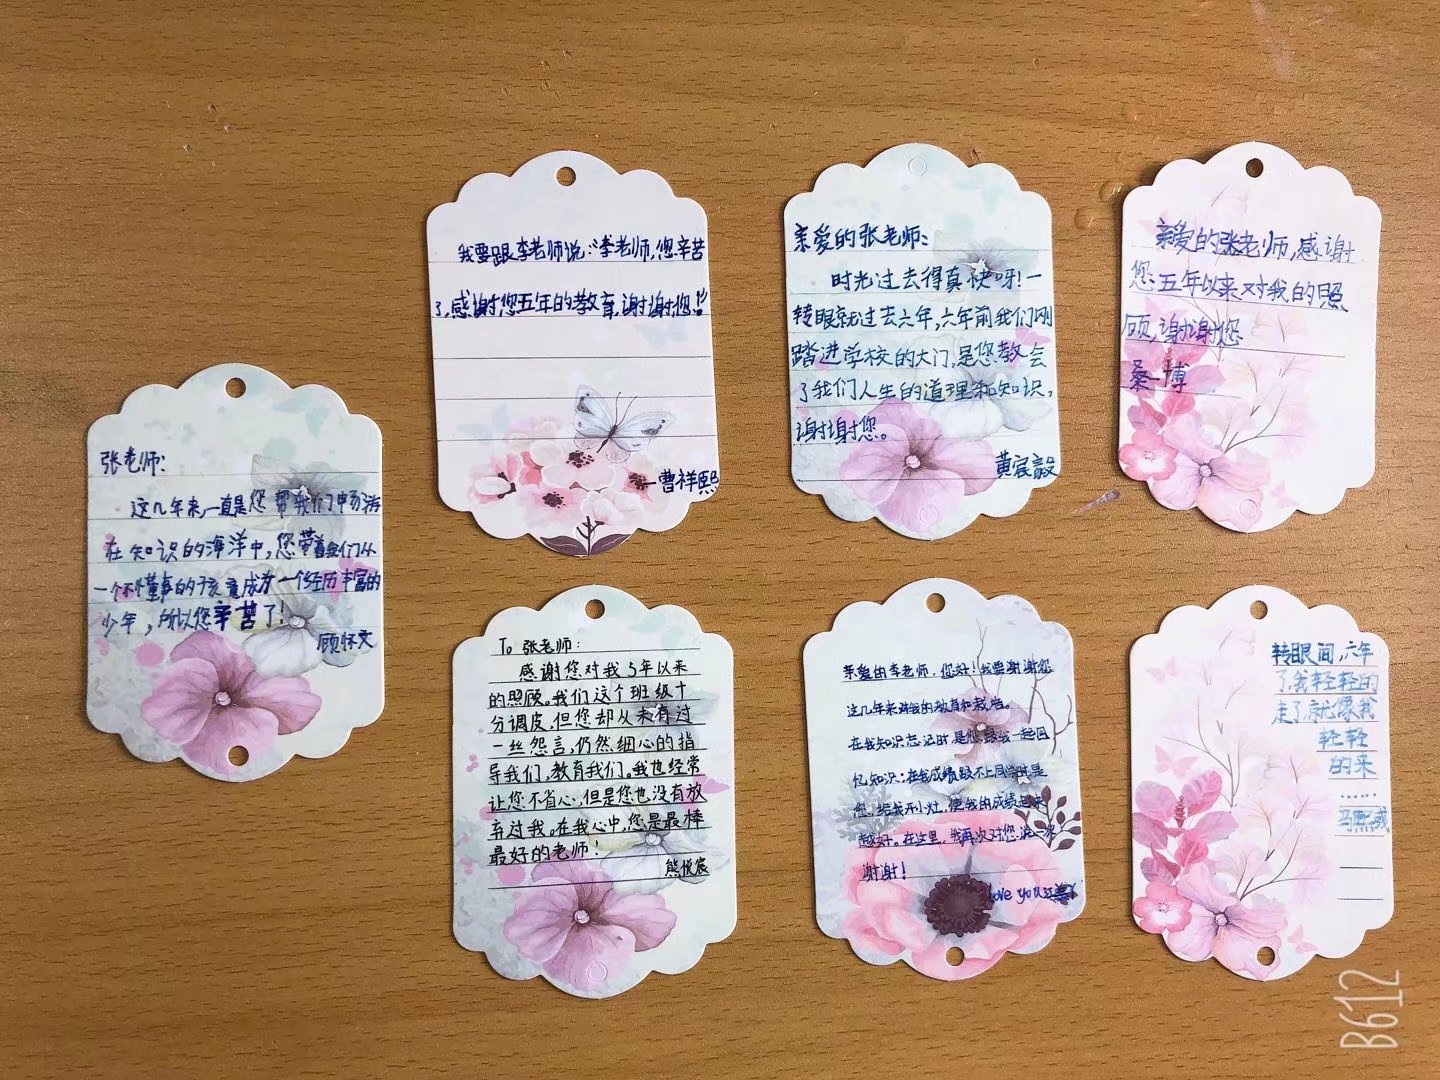 张老师：
这几年来，一直是您帮我们畅游
在知识的海洋中，您带着我们从
一个不懂事的孩童成为一个经历丰富的
少年，所以您辛苦了！
顾怀文
我要跟李老师说：“李老师，您辛苦
了，感谢您五年的教育，谢谢您！”
—曹祥熙
亲爱的张老师：
时光过去得真快呀！一
转眼就过去六年，六年前我们刚
踏进学校的大门，是您教会
了我们人生的道理和知识，
谢谢您。
黄宸毅
亲爱的张老师，感谢
您五年以来对我的照
顾，谢谢您
桑一博
To 张老师：
感谢您对我5年以来
的照顾。我们这个班级十
分调皮，但您却从未有过
一丝怨言，仍然细心的指
导我们，教育我们。我也经常
让您不省心，但是您也没有放
弃过我。在我心中，您是最棒
最好的老师！
熊悦宸
亲爱的李老师，您好！我要谢谢您
这几年来对我的教育和栽培。
在我知识忘记时，是您跟我一起回
忆知识；在我成绩跟不上同学时，是
您，给我开小灶，使我的成绩越来
越好。在这里，我再次对您说一次
谢谢！
love you
转眼间，六年
了，我轻轻的
走了，就像我
轻轻
的来
……
马熙
B612